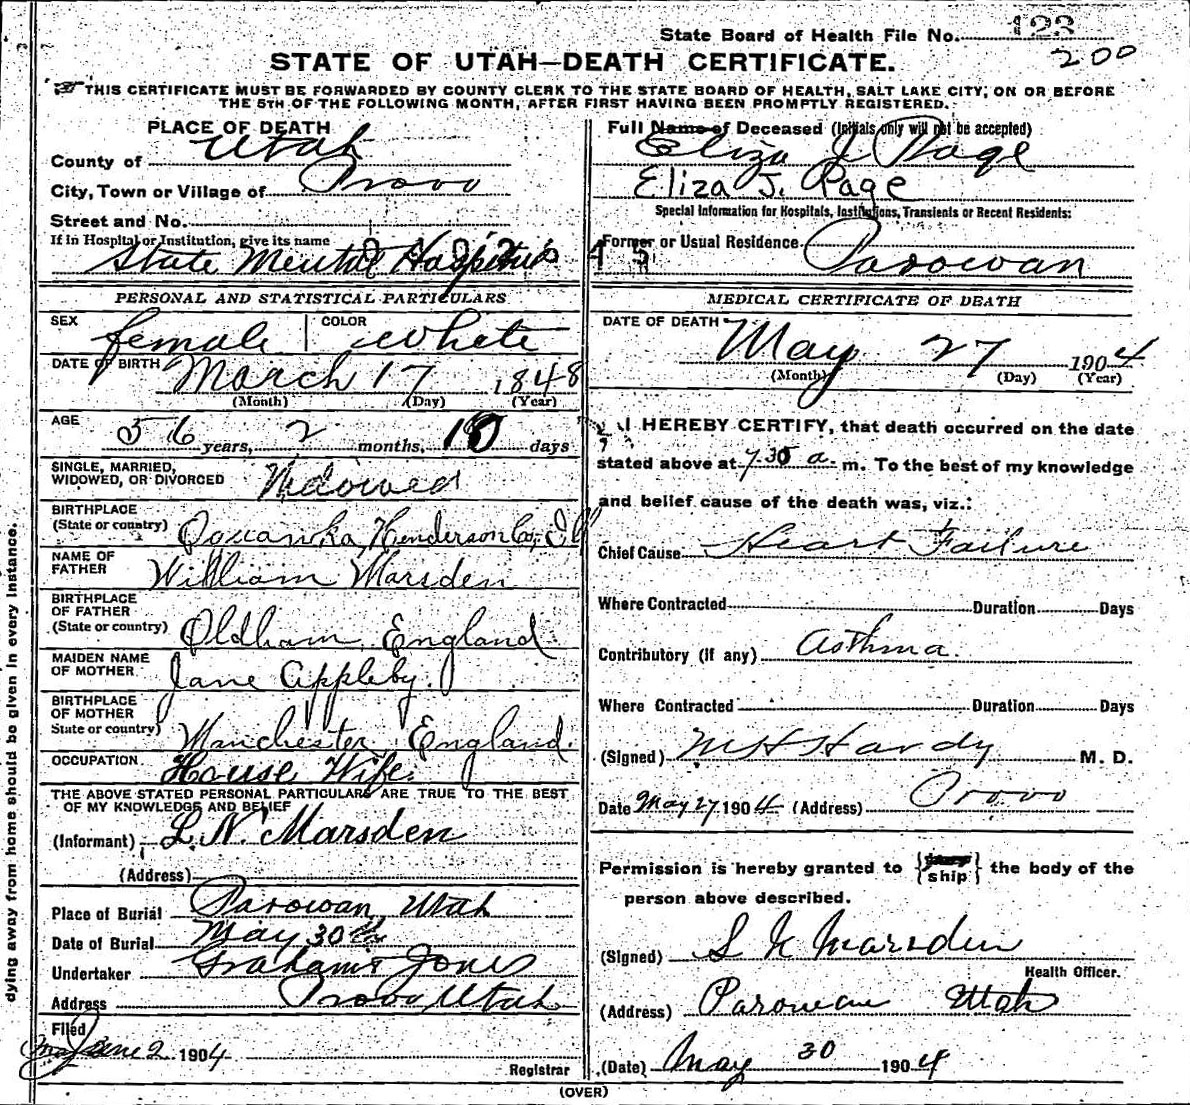 State Board of Health File No. 123
200
STATE OF UTAH—DEATH CERTIFICATE.
THIS CERTIFICATE MUST BE FORWARDED BY COUNTY CLERK TO THE STATE BOARD OF HEALTH, SALT LAKE CITY, ON OR BEFORE
THE 5TH OF THE FOLLOWING MONTH, AFTER FIRST HAVING BEEN PROMPTLY REGISTERED.
PLACE OF DEATH
County of Utah
City, Town or Village of Provo
Street and No.
If in Hospital or Institution, give its name
State Mental Hospital
PERSONAL AND STATISTICAL PARTICULARS
SEX female COLOR White
DATE OF BIRTH March 17 1848
(Month) (Day) (Year)
AGE 56 years, 2 months, 10 days
SINGLE, MARRIED,
WIDOWED, OR DIVORCED Widowed
BIRTHPLACE
(State or country) Henderson Co,
NAME OF
FATHER William Marsden
BIRTHPLACE
OF FATHER
(State or country) Oldham, England
MAIDEN NAME
OF MOTHER Jane Appleby.
BIRTHPLACE
OF MOTHER
State or country) Manchester, England.
OCCUPATION. House Wife.
THE ABOVE STATED PERSONAL PARTICULARS ARE TRUE TO THE BEST
OF MY KNOWLEDGE AND BELIEF
(Informant) L. N. Marsden
(Address)
Place of Burial Parowan, Utah
Date of Burial May 30th
Undertaker Graham & Jones
Address Provo, Utah
Filed
June 2 1904
Registrar
Full Name of Deceased (Initials only will not be accepted)
Eliza J Page
Eliza J. Page
Special Information for Hospitals, Institutions, Transients or Recent Residents:
Former or Usual Residence Parowan
MEDICAL CERTIFICATE OF DEATH
DATE OF DEATH May 27 1904
(Month) (Day) (Year)
I HEREBY CERTIFY, that death occurred on the date
stated above at 7.30 a. m. To the best of my knowledge
and belief cause of the death was, viz.:
Chief Cause Heart Failure
Where Contracted Duration Days
Contributory (if any) Asthma.
Where Contracted Duration Days
(Signed) M H Hardy M. D.
Date May 27 1904 (Address) Provo
Permission is hereby granted to { ship } the body of the
person above described.
(Signed) Marsden
Health Officer.
(Address) Parowan Utah
(Date) May 30 1904
(OVER)
dying away from home should be given in every instance.